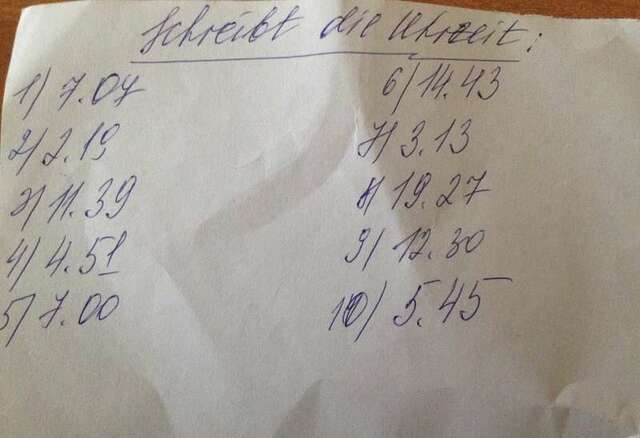 Schreibt die Uhrzeit:
1) 7.07
2) 2.19
3) 11.39
4) 4.51
5) 7.00
6) 14.43
7) 3.13
8) 19.27
9) 12.30
10) 5.45